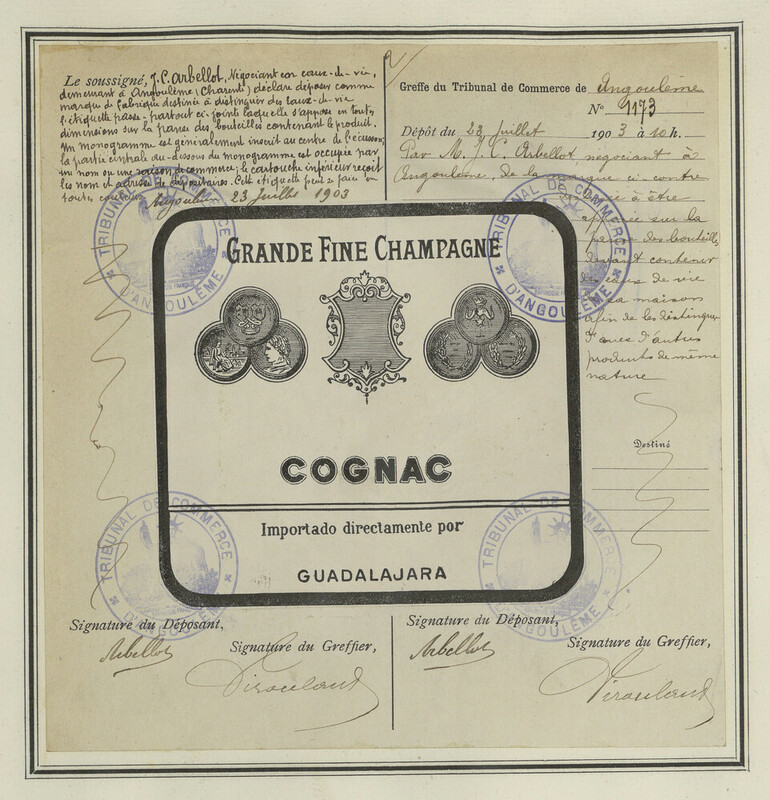 Le soussigné, J. C. Arbellot, Négociant en eaux-de-vie,
demeurant à Angoulême (Charente) déclare déposer comme
marque de fabrique destinée à distinguer des eaux-de-vie
l'étiquette passe-partout ci-jointe laquelle s'appose en toutes
dimensions sur la panse des bouteilles contenant le produit.
Un monogramme est généralement inscrit au centre de l'écusson;
la partie centrale au-dessous du monogramme est occupée par
un nom ou une raison de commerce; le cartouche inférieur reçoit
les nom et adresse de dépositaires. Cette étiquette peut se faire en
toutes couleurs
Angoulême 23 Juillet 1903
Greffe du Tribunal de Commerce de Angoulême
N° 1173
Dépôt du 23 Juillet 1903 à 10 h.
Par M. J. C. Arbellot, négociant à
Angoulême, de la marque ci-contre
à être
apposée sur la
panse des bouteilles
devant contenir
des eaux de vie
de sa maison
afin de les distinguer
d'avec d'autres
produits de même
nature
TRIBUNAL DE COMMERCE D'ANGOULÊME
TRIBUNAL DE COMMERCE D'ANGOULÊME
GRANDE FINE CHAMPAGNE
Destiné
COGNAC
Importado directamente por
GUADALAJARA
TRIBUNAL DE COMMERCE D'ANGOULÊME
TRIBUNAL DE COMMERCE D'ANGOULÊME
Signature du Déposant,
Arbellot
Signature du Greffier,
Signature du Déposant,
Arbellot
Signature du Greffier,